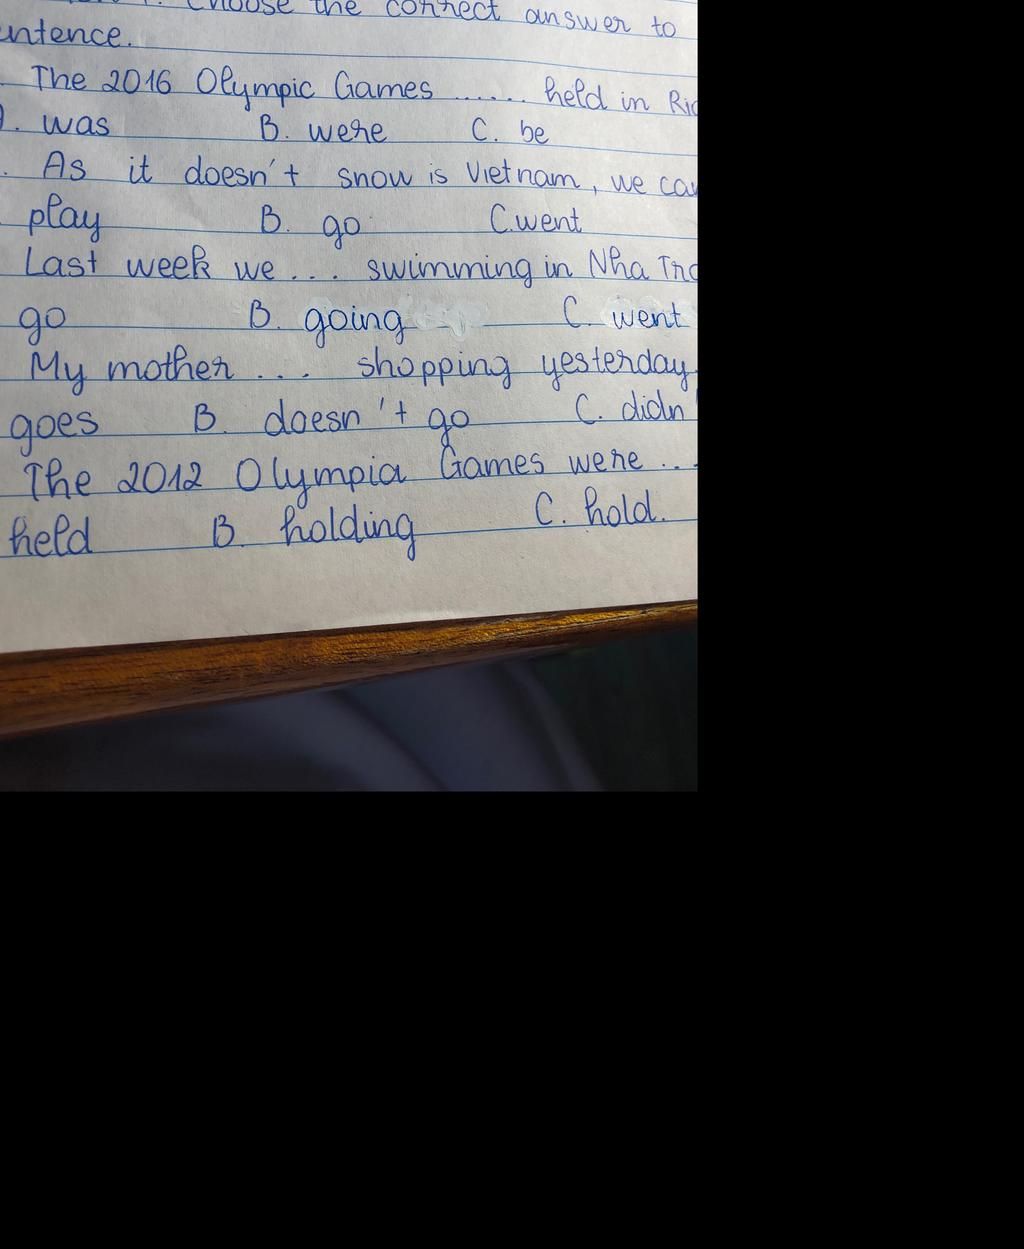 Choose the correct answer to
entence.
The 2016 Olympic Games ...... held in Rio
. was B. were C. be
. As it doesn't snow is Vietnam, we can
play B. go C. went
Last week we ... swimming in Nha Tra
go B. going C. went
My mother ... shopping yesterday.
goes B. doesn't go C. didn'
The 2012 Olympia Games were ...
held B. holding C. hold.